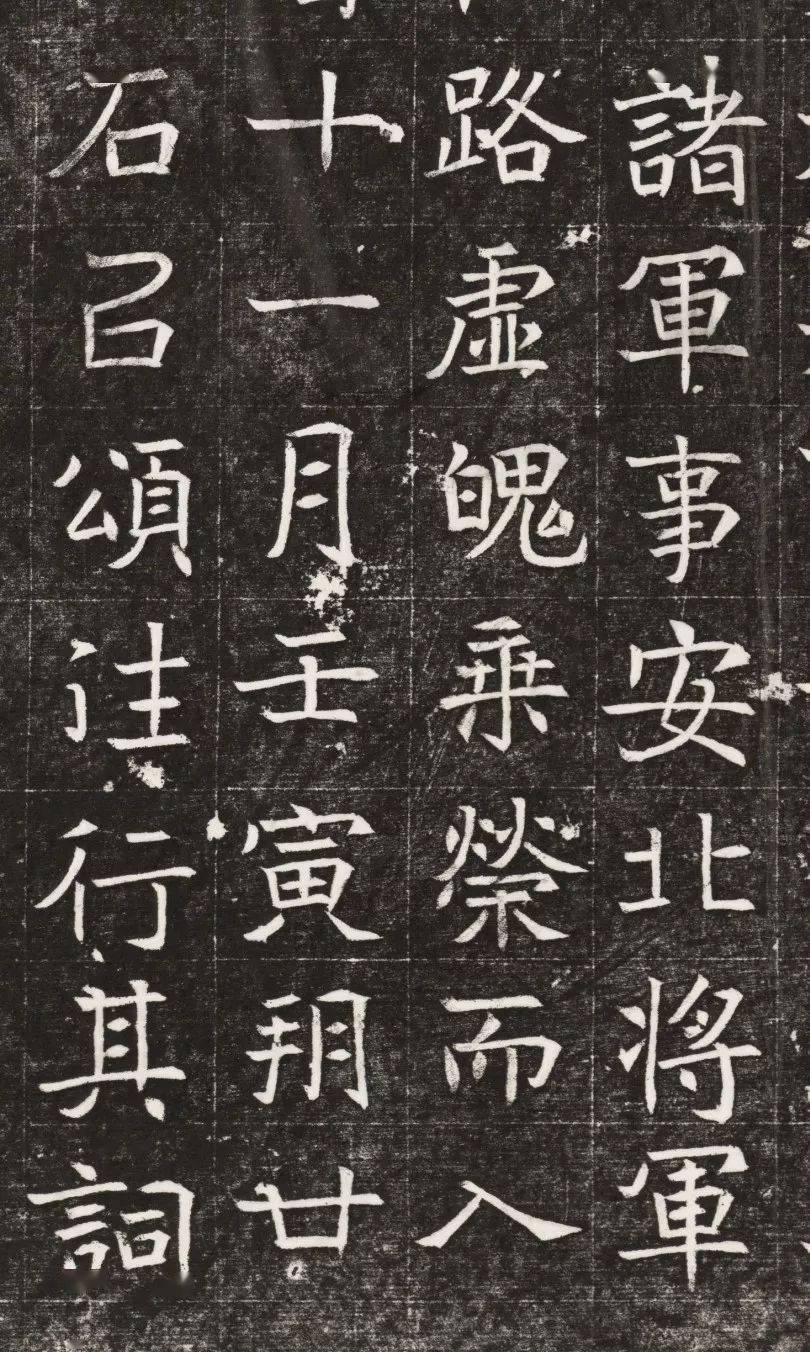 諸軍事安北將軍
路虛魄乗榮而入
十一月壬寅朔廿
石㠯頌徃行其詞